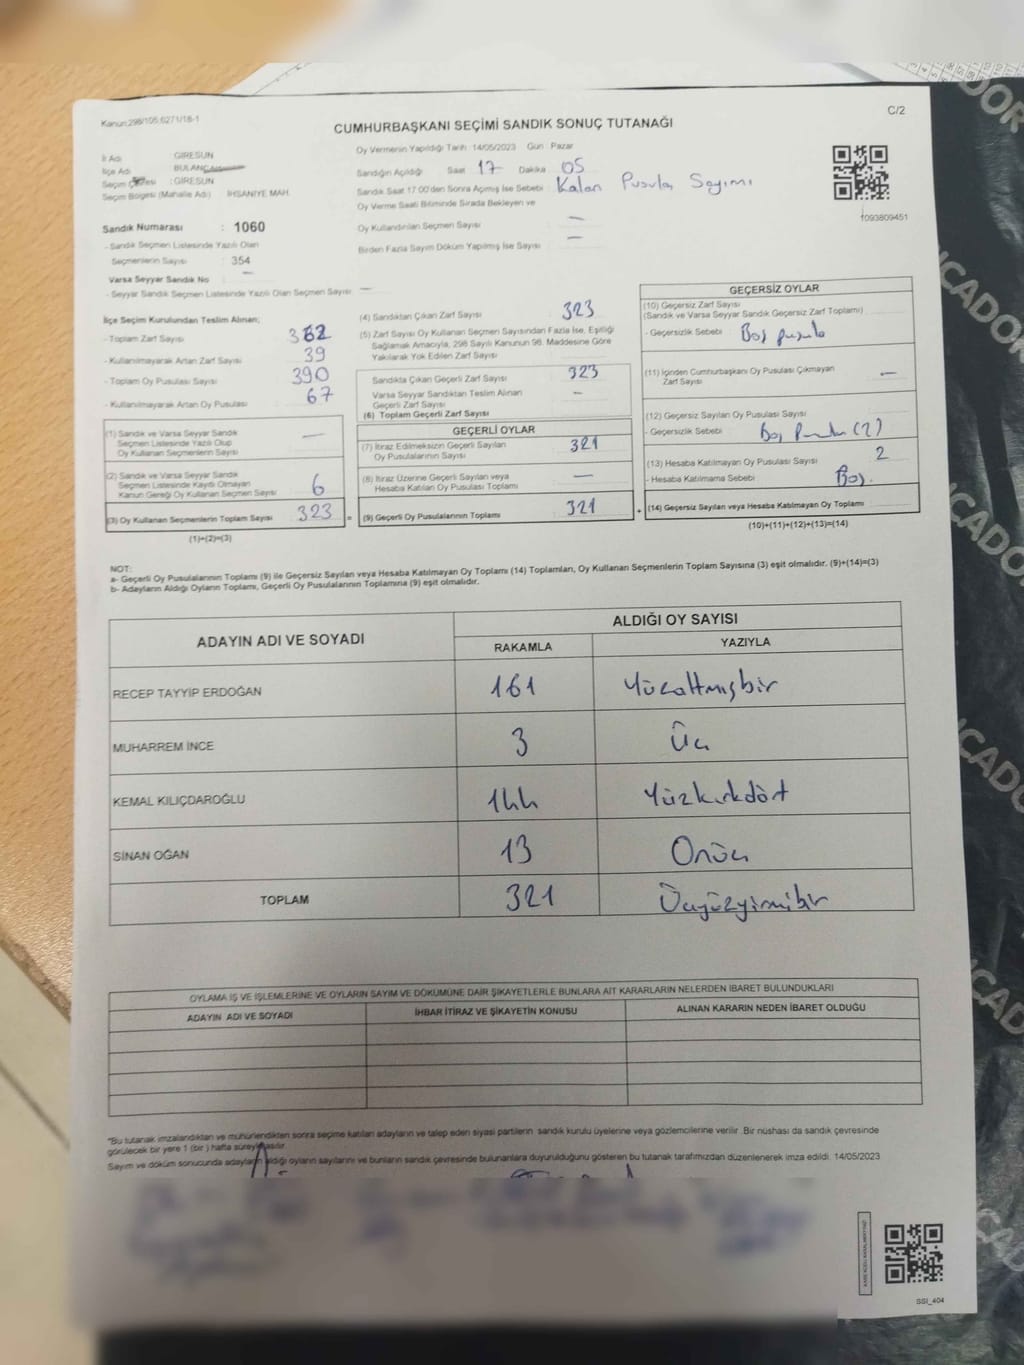 Kanun:298/105,6271/18-1
C/2
CUMHURBAŞKANI SEÇİMİ SANDIK SONUÇ TUTANAĞI
İl Adı GİRESUN
İlçe Adı BULANCAK
Seçim Çevresi : GİRESUN
Seçim Bölgesi (Mahalle Adı) İHSANİYE MAH.
Sandık Numarası : 1060
- Sandık Seçmen Listesinde Yazılı Olan
Seçmenlerin Sayısı : 354
Varsa Seyyar Sandık No —
- Seyyar Sandık Seçmen Listesinde Yazılı Olan Seçmen Sayısı —
Oy Vermenin Yapıldığı Tarih :14/05/2023 Gün : Pazar
Sandığın Açıldığı Saat 17 Dakika 05
Sandık Saat 17.00'den Sonra Açımış İse Sebebi : Kalan Pusula Sayımı
Oy Verme Saati Bitiminde Sırada Bekleyen ve
Oy Kullandırılan Seçmen Sayısı —
Birden Fazla Sayım Döküm Yapılmış İse Sayısı —
1093809451
İlçe Seçim Kurulundan Teslim Alınan;
- Toplam Zarf Sayısı 362
- Kullanılmayarak Artan Zarf Sayısı 39
- Toplam Oy Pusulası Sayısı 390
- Kullanılmayarak Artan Oy Pusulası 67
(1) Sandık ve Varsa Seyyar Sandık
Seçmen Listesinde Yazılı Olup
Oy Kullanan Seçmenlerin Sayısı —
(2) Sandık ve Varsa Seyyar Sandık
Seçmen Listesinde Kayıtlı Olmayan
Kanun Gereği Oy Kullanan Seçmen Sayısı 6
(3) Oy Kullanan Seçmenlerin Toplam Sayısı 323 =
(1)+(2)=(3)
(4) Sandıktan Çıkan Zarf Sayısı 323
(5) Zarf Sayısı Oy Kullanan Seçmen Sayısından Fazla İse, Eşitliği
Sağlamak Amacıyla, 298 Sayılı Kanunun 98. Maddesine Göre
Yakılarak Yok Edilen Zarf Sayısı
Sandıkta Çıkan Geçerli Zarf Sayısı 323
Varsa Seyyar Sandıktan Teslim Alınan
Geçerli Zarf Sayısı —
(6) Toplam Geçerli Zarf Sayısı
GEÇERLİ OYLAR
(7) İtiraz Edilmeksizin Geçerli Sayılan
Oy Pusulalarının Sayısı 321
(8) İtiraz Üzerine Geçerli Sayılan veya
Hesaba Katılan Oy Pusulası Toplamı —
(9) Geçerli Oy Pusulalarının Toplamı 321 +
GEÇERSİZ OYLAR
(10) Geçersiz Zarf Sayısı
(Sandık ve Varsa Seyyar Sandık Geçersiz Zarf Toplamı)
- Geçersizlik Sebebi : Boş pusula
(11) İçinden Cumhurbaşkanı Oy Pusulası Çıkmayan
Zarf Sayısı —
(12) Geçersiz Sayılan Oy Pusulası Sayısı
- Geçersizlik Sebebi Boş Pusula (2)
(13) Hesaba Katılmayan Oy Pusulası Sayısı 2
- Hesaba Katılmama Sebebi Boş.
(14) Geçersiz Sayılan veya Hesaba Katılmayan Oy Toplamı
(10)+(11)+(12)+(13)=(14)
NOT:
a- Geçerli Oy Pusulalarının Toplamı (9) ile Geçersiz Sayılan veya Hesaba Katılmayan Oy Toplamı (14) Toplamları, Oy Kullanan Seçmenlerin Toplam Sayısına (3) eşit olmalıdır. (9)+(14)=(3)
b- Adayların Aldığı Oyların Toplamı, Geçerli Oy Pusulalarının Toplamına (9) eşit olmalıdır.
ADAYIN ADI VE SOYADI
ALDIĞI OY SAYISI
RAKAMLA YAZIYLA
RECEP TAYYİP ERDOĞAN 161 Yüzaltmışbir
MUHARREM İNCE 3 Üç
KEMAL KILIÇDAROĞLU 144 Yüzkırkdört
SİNAN OĞAN 13 Onüç
TOPLAM 321 Üçyüzyirmibir
OYLAMA İŞ VE İŞLEMLERİNE VE OYLARIN SAYIM VE DÖKÜMÜNE DAİR ŞİKAYETLERLE BUNLARA AİT KARARLARIN NELERDEN İBARET BULUNDUKLARI
ADAYIN ADI VE SOYADI İHBAR İTİRAZ VE ŞİKAYETİN KONUSU ALINAN KARARIN NEDEN İBARET OLDUĞU
*Bu tutanak imzalandıktan ve mühürlendikten sonra seçime katılan adayların ve talep eden siyasi partilerin sandık kurulu üyelerine veya gözlemcilerine verilir. Bir nüshası da sandık çevresinde
görülecek bir yere 1 (bir) hafta süreyle asılır.
Sayım ve döküm sonucunda adayların aldığı oyların sayılarını ve bunların sandık çevresinde bulunanlara duyurulduğunu gösteren bu tutanak tarafımızdan düzenlenerek imza edildi. 14/05/2023
SSI_404